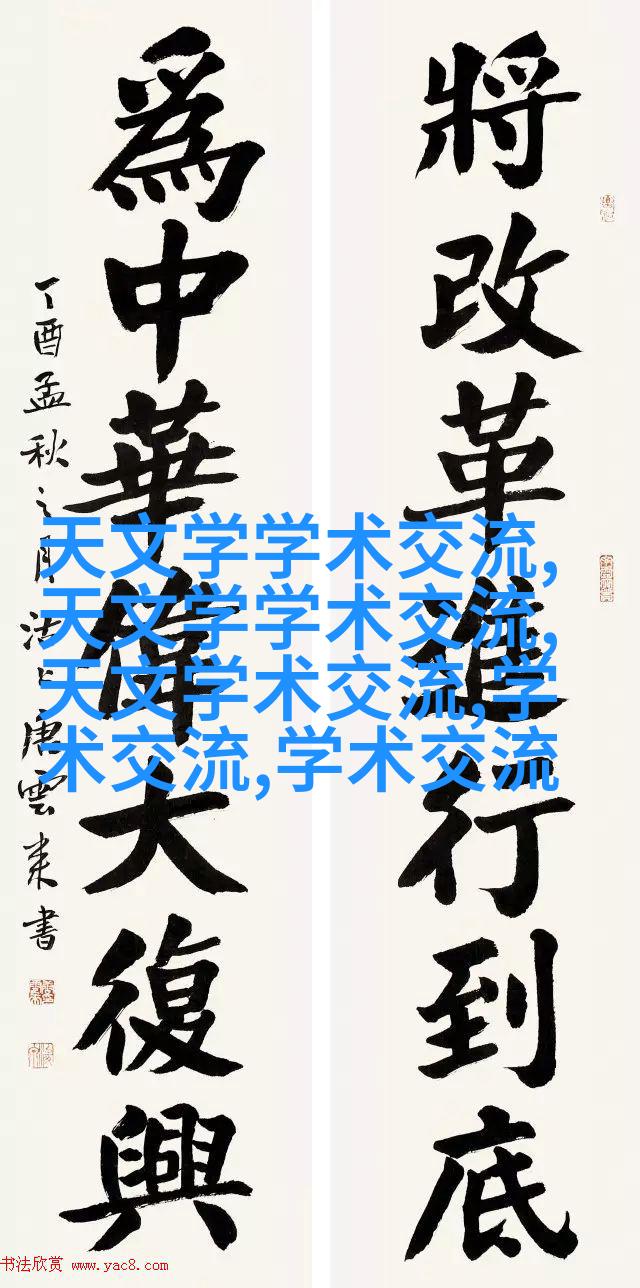 將改革進行到底
為中華偉大復興
丁酉孟秋之月法上唐雲来書
天文学学术交流,
天文学学术交流,
天文学术交流,学
术交流,学术交流
书法欣赏 www.yac8.com